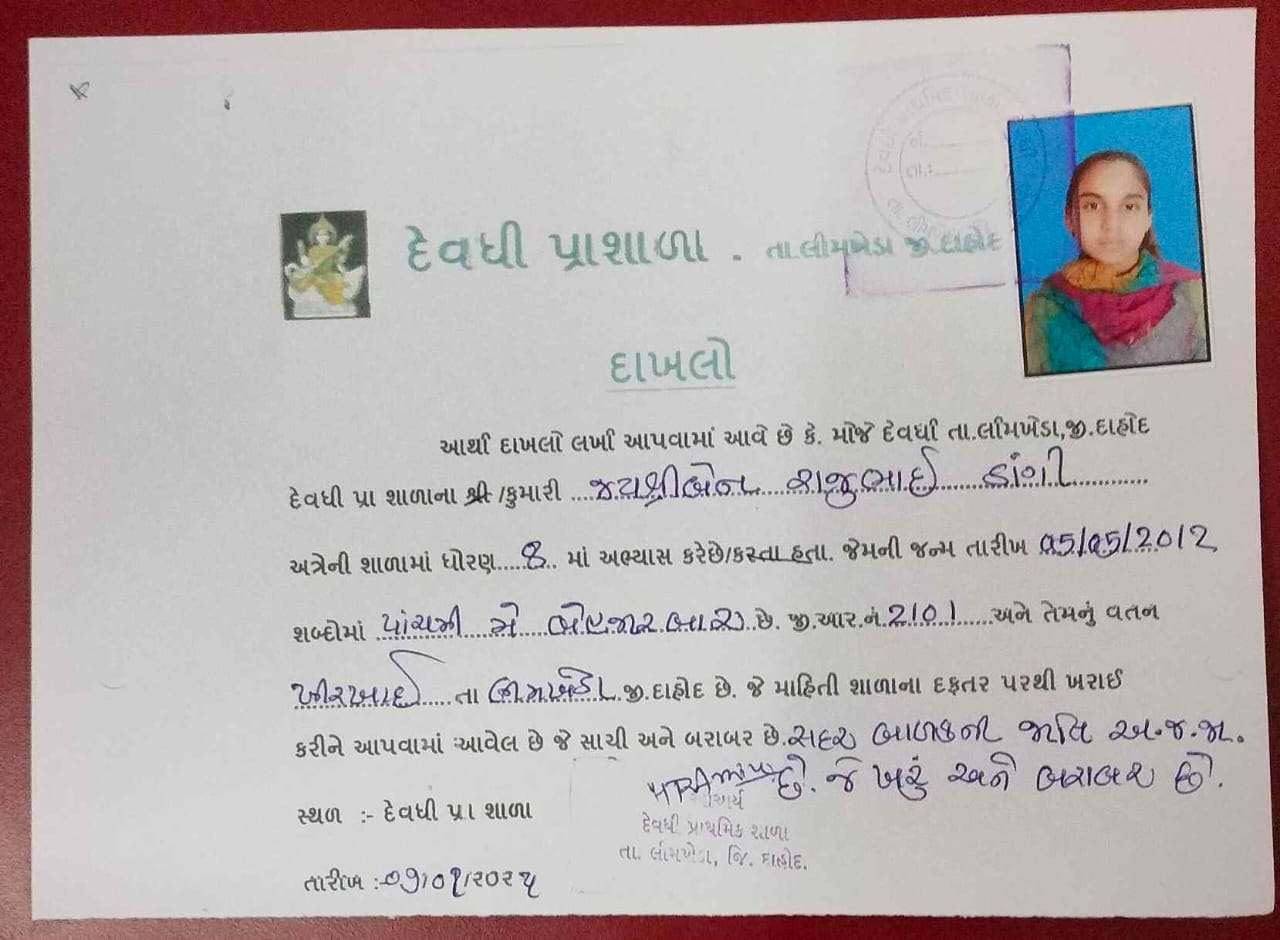 દેવધી પ્રાશાળા . તા.લીમખેડા જી.દાહોદ
દાખલો
આથી દાખલો લખી આપવામાં આવે છે કે. મોજે દેવધી તા.લીમખેડા,જી.દાહોદ
દેવધી પ્રા શાળાના શ્રી /કુમારી ....જયશ્રીબેન રાજુભાઈ ડાંગી
અત્રેની શાળામાં ધોરણ.....8.. માં અભ્યાસ કરેછે/કરતા હતા. જેમની જન્મ તારીખ 05/05/2012
શબ્દોમાં પાંચમી મે બેહજાર બાર છે. જી.આર.નં.2101 ......અને તેમનું વતન
ખીરખાઈ.....તા લીમખેડા.જી.દાહોદ છે. જે માહિતી શાળાના દફતર પરથી ખરાઈ
કરીને આપવામાં આવેલ છે જે સાચી અને બરાબર છે.સદર બાળકની જાતિ અ.જ.જા.
છે. જે ખરું અને બરાબર છે.
આચાર્ય
સ્થળ :- દેવધી પ્રા શાળા
દેવધી પ્રાથમિક શાળા
તા. લીમખેડા, જિ. દાહોદ.
તારીખ :-૦૧/૦૧/૨૦૨૫